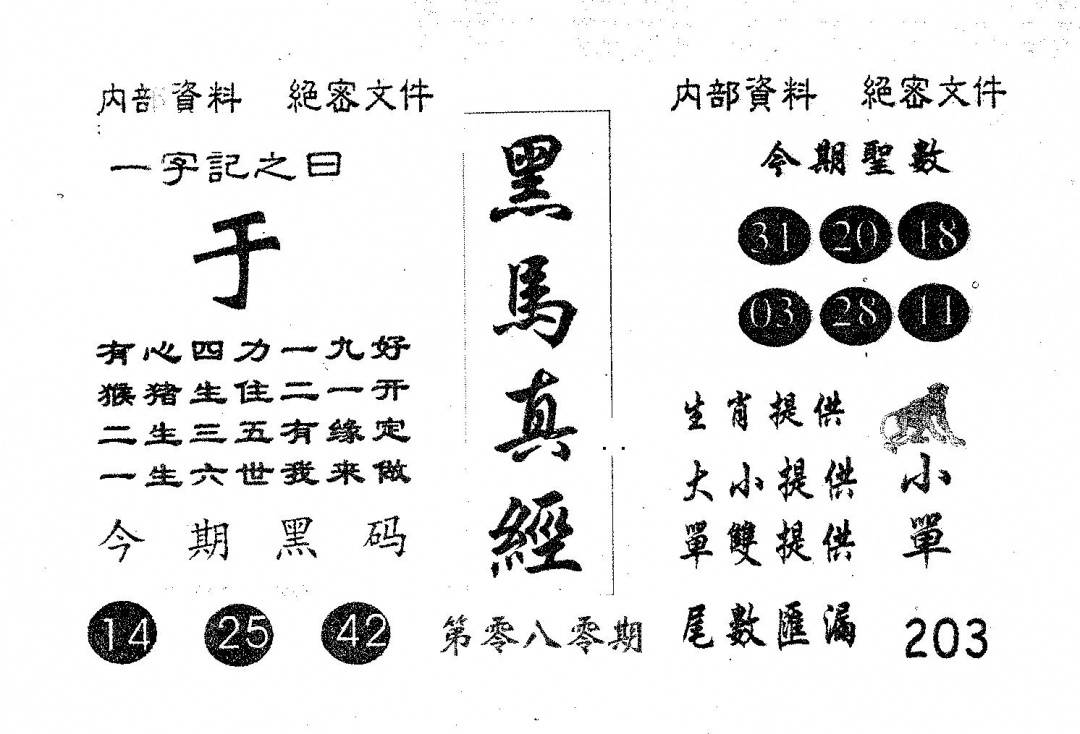 内部資料 絕密文件
一字記之曰
于
有心四力一九好
猴猪生住二一开
二生三五有缘定
一生六世我来做
今期黑码
14 25 42
黑馬真經
第零八零期
内部資料 絕密文件
今期聖數
31 20 18
03 28 11
生肖提供
大小提供 小
單雙提供 單
尾數匯漏 203